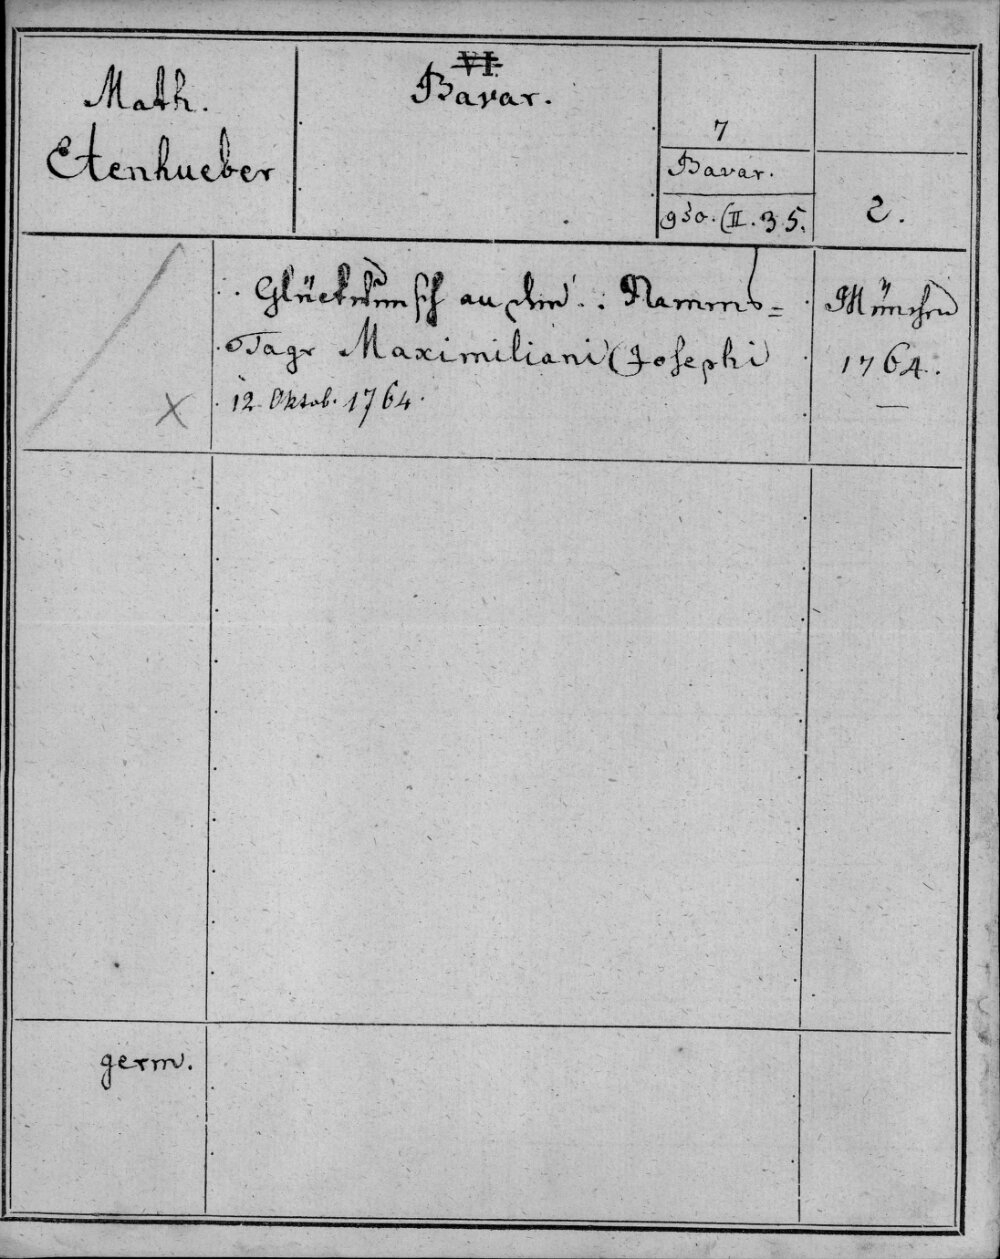 Math.
Etenhueber
VI.
Bavar.
7
Bavar.
930. (II. 35.
2.
.. Glückwunsch an dem .. Namens=
Tage Maximiliani Josephi
12. Oktob. 1764.
München
1764.
X
germ.